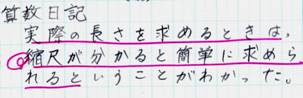 算数日記
実際の長さを求めるときは,
縮尺が分かると簡単に求めら
れるということがわかった。